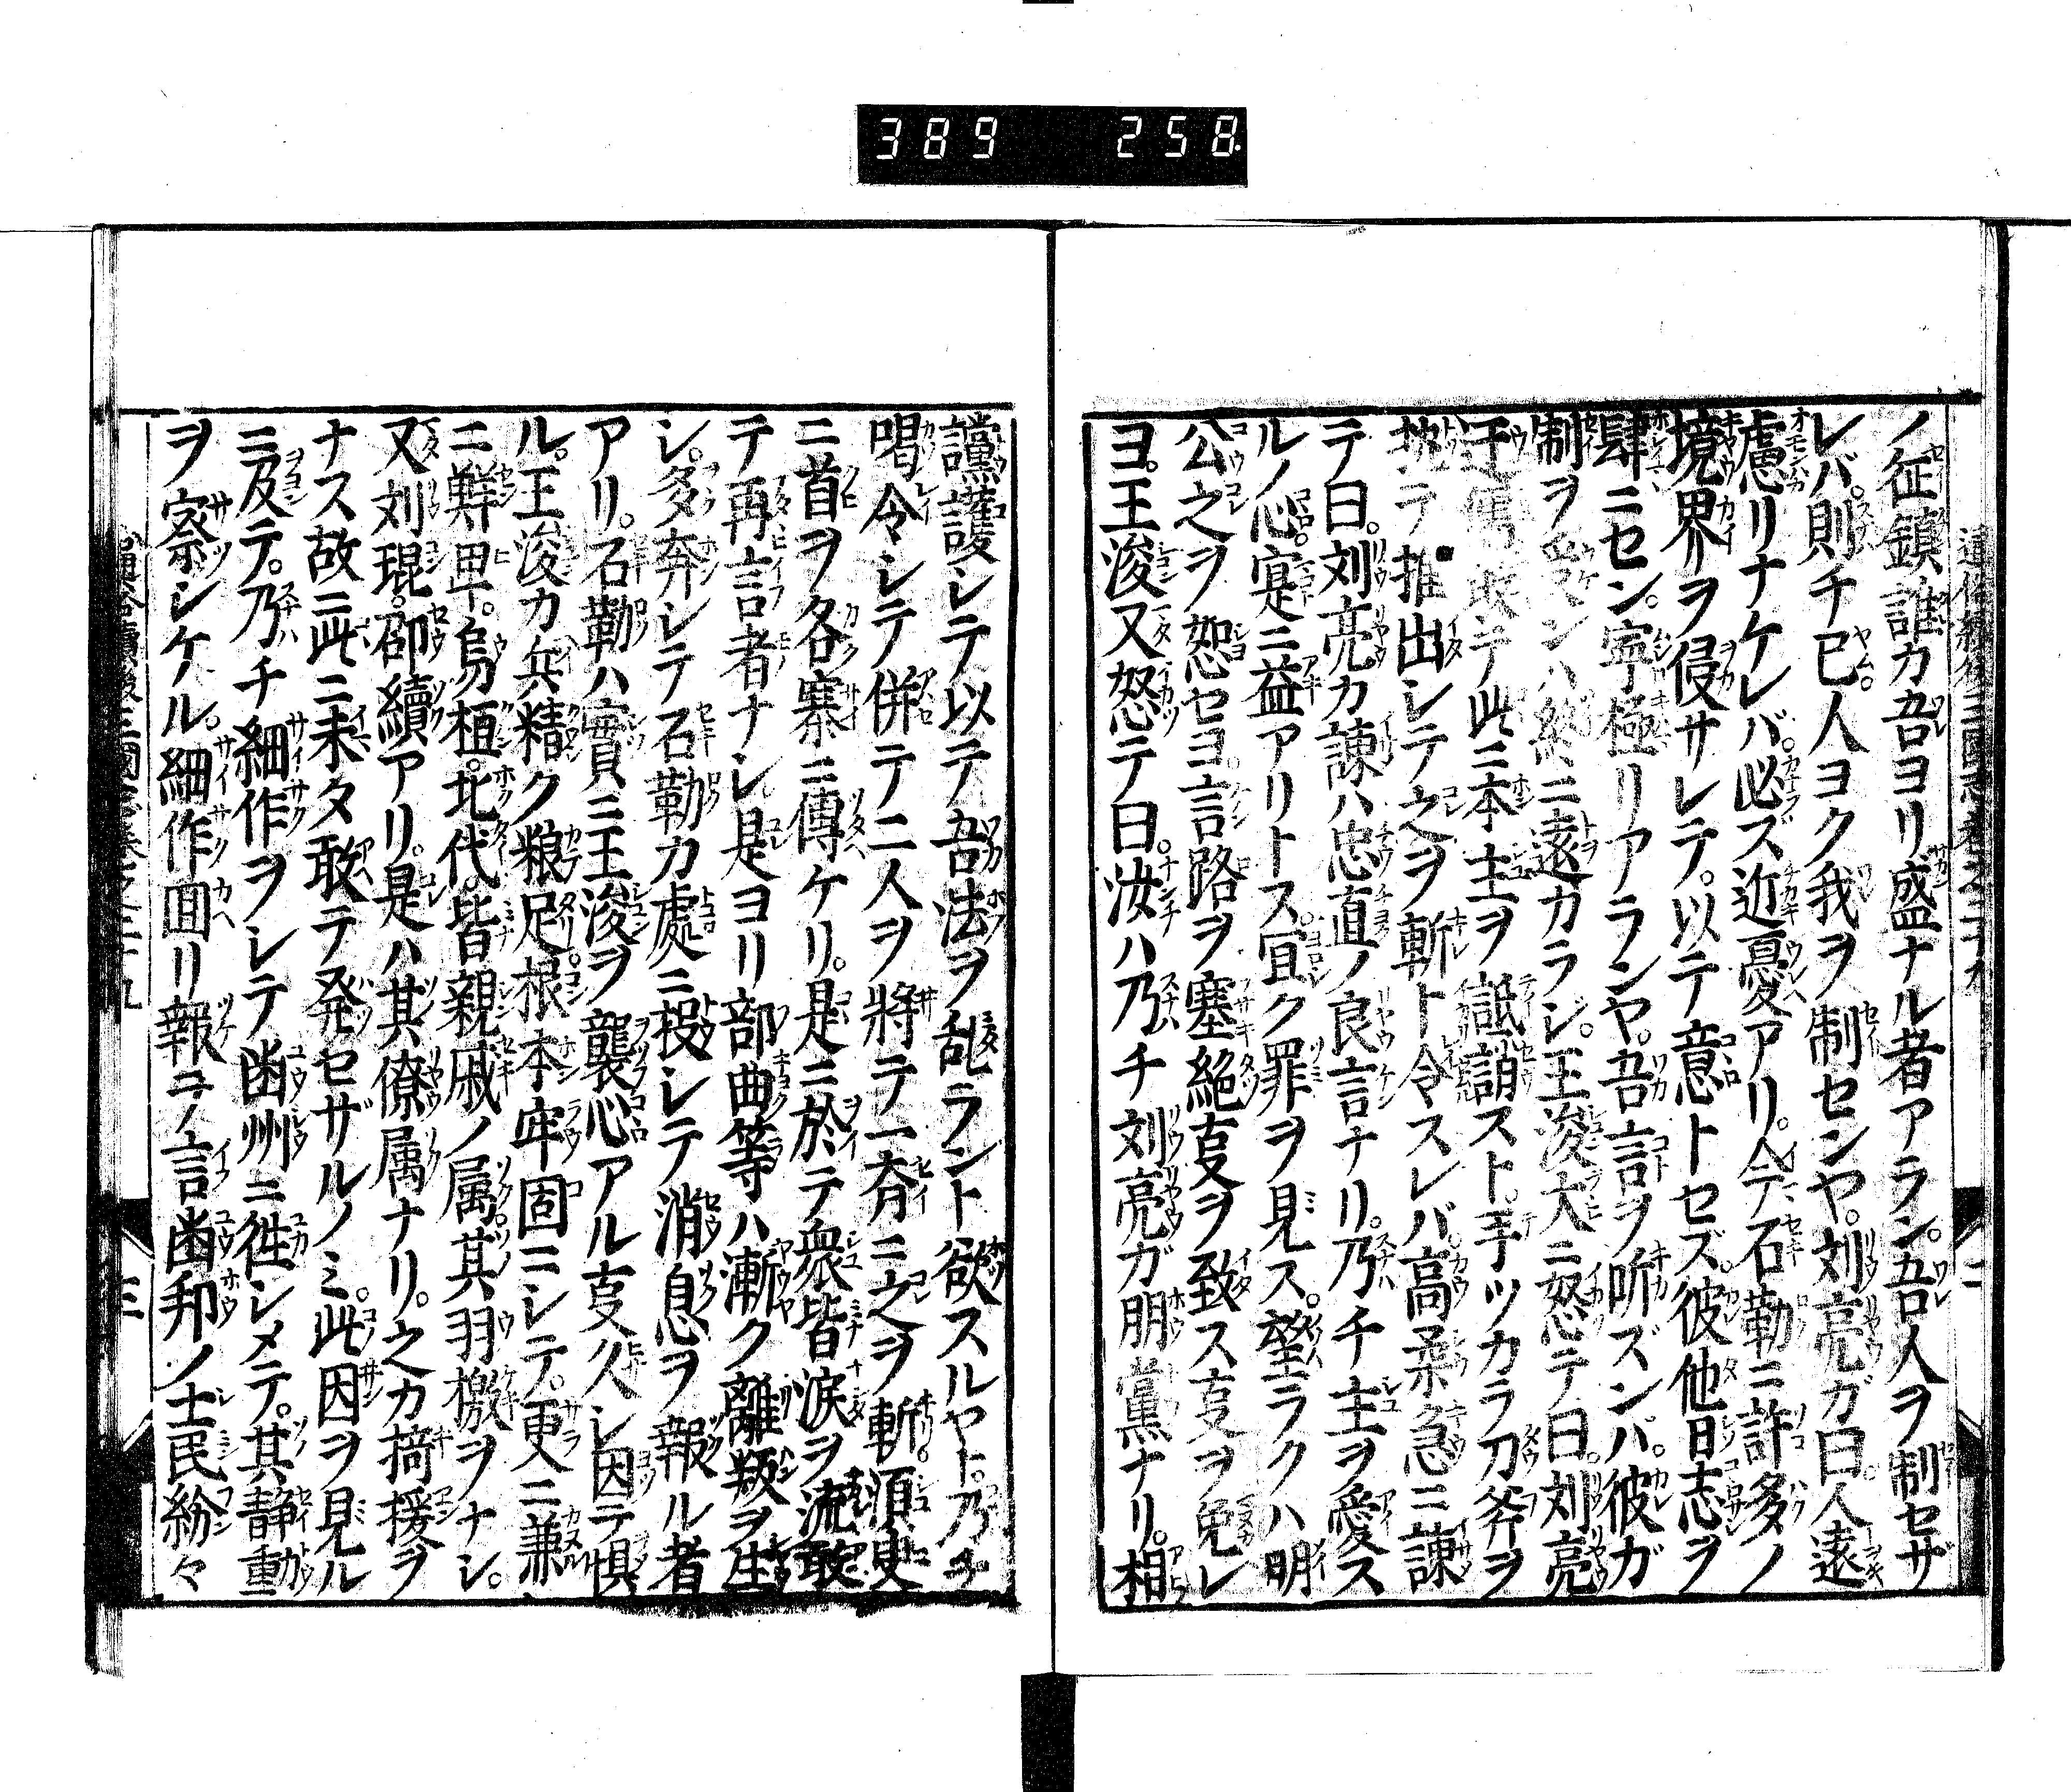 389 258
ノ征鎮誰カ吾ヨリ盛ナル者アラン。吾人ヲ制セザ
レバ。則チ已。人ヨク我ヲ制センヤ。刘亮ガ曰。人遠
慮リナケレバ。必ズ近憂アリ。今石勒ニ許多ノ
境界ヲ侵サレテ。以テ意トセズ。彼他日志ヲ
肆ニセン。寧極リアランヤ。吾言ヲ听ズンバ。彼ガ
制ヲ受ンハ終ニ遠カラジ。王浚大ニ怒テ曰。刘亮
此ニ本主ヲ詆謗スト。手ツカラ刀斧ヲ
テ推出シテ之ヲ斬ト令スレバ。高柔急ニ諫
テ曰。刘亮カ諫ハ忠直ノ良言ナリ。乃チ主ヲ愛ス
ルノ心。寔ニ益アリトス。宜ク罪ヲ見ス。望ラクハ明
公之ヲ恕セヨ。言路ヲ塞絶㕝ヲ致ス㕝ヲ免レ
ヨ。王浚又怒テ曰。汝ハ乃チ刘亮ガ朋黨ナリ。相
讜護シテ以テ吾法ヲ乱ラント欲スルヤト。乃チ
喝令シテ併テ二人ヲ將テ一斉ニ之ヲ斬。須臾
ニ首ヲ各寨ニ傳ケリ。是ニ於テ衆皆涙ヲ流。敢
テ再言者ナシ。是ヨリ部曲等ハ漸ク離叛ヲ生
シ。多奔シテ石勒カ處ニ投シテ消息ヲ報ル者
アリ。石勒ハ實ニ王浚ヲ襲心アル㕝久シ。因テ惧
ル。王浚カ兵精ク粮足。根本牢固ニシテ。更ニ兼
ニ鮮卑。烏桓。北代。皆親戚ノ属。其羽檄ヲナシ。
又刘琨。邵續アリ。是ハ其僚属ナリ。之カ掎援ヲ
ナス故ニ此ニ未タ敢テ発セザルノミ。此因ヲ見ル
ニ及テ。乃チ細作ヲシテ幽州ニ徃シメテ。其静動
ヲ察シケル。細作囬リ報ヲ言幽邦ノ士民紛々
三